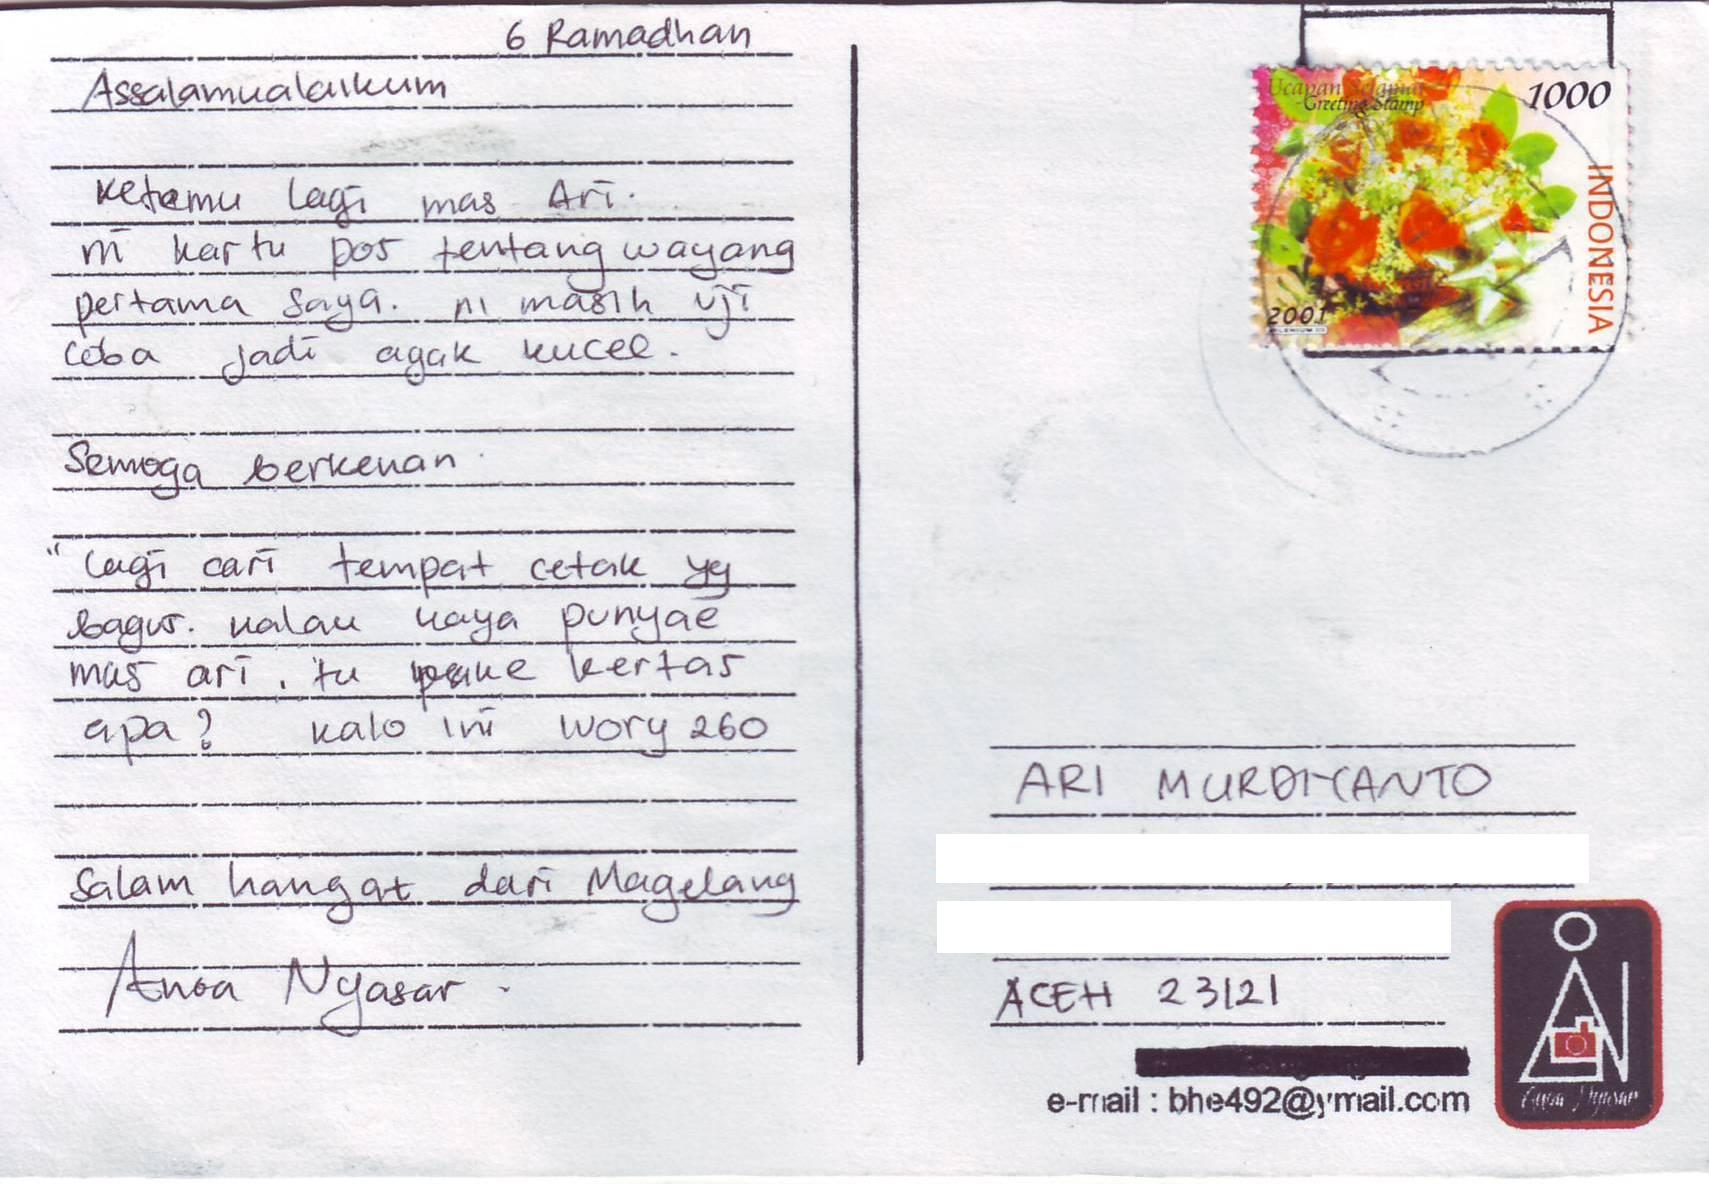 6 Ramadhan
Assalamualaikum
Ketemu lagi mas Ari.
ni kartu pos tentang wayang
pertama saya. ni masih uji
coba jadi agak kucel.
Semoga berkenan.
" lagi cari tempat cetak yg
bagus. kalau kaya punyae
mas ari. tu pake kertas
apa? kalo ini ivory 260
Salam hangat dari Magelang
Anoa Nyasar.
Ucapan Selamat
Greeting Stamp
1000
INDONESIA
2001
ARI MURDIYANTO
ACEH 23121
e-mail : bhe492@ymail.com
Anoa Nyasar